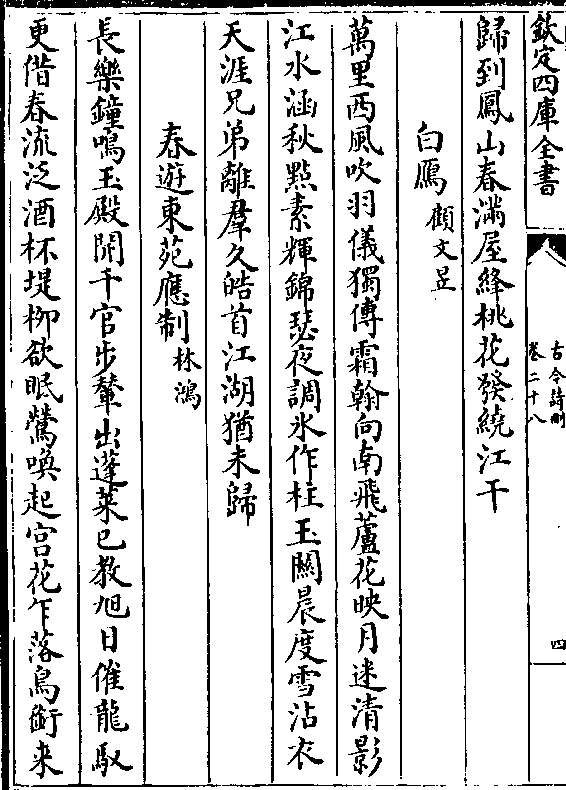 欽定四庫全書
古今詩刪
卷二十八
四
歸到鳳山春滿屋絳桃花發繞江干
白鴈 顧文昱
萬里西風吹羽儀獨傳霜翰向南飛蘆花映月迷清影
江水涵秋㸃素輝錦瑟夜調氷作柱玉闗晨度雪沾衣
天涯兄弟離羣久皓首江湖猶未歸
春遊東苑應制 林鴻
長樂鐘鳴玉殿開千官步輦出蓬萊已教旭日催龍馭
更借春流泛酒杯堤栁欲眠鶯喚起宫花乍落鳥銜来